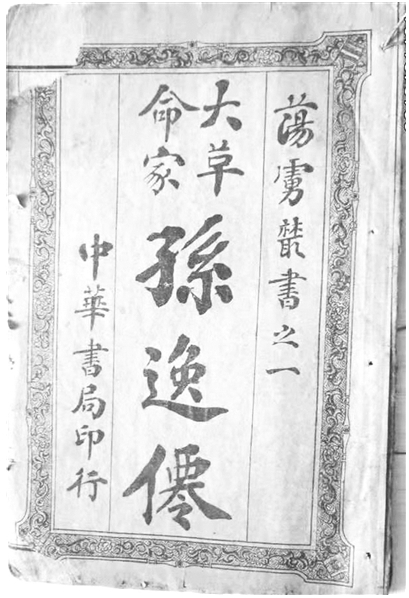 蕩虜叢書之一
大革
命家
孫逸僊
中華書局印行